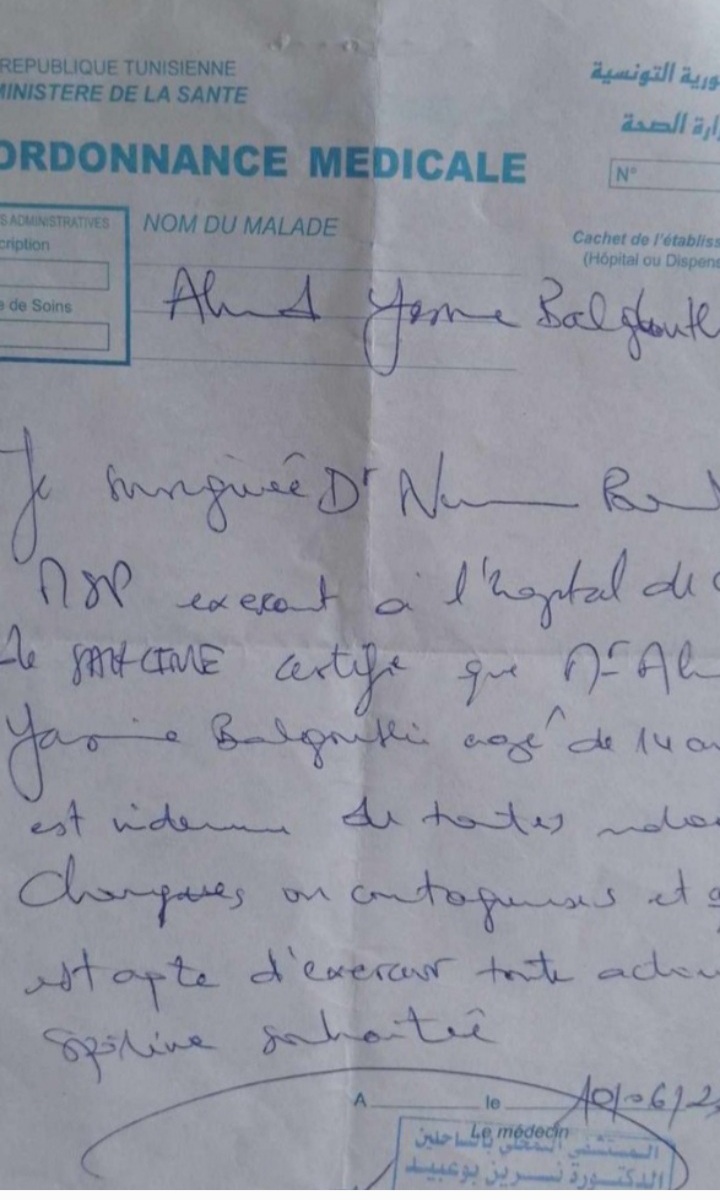 REPUBLIQUE TUNISIENNE
MINISTERE DE LA SANTE
ORDONNANCE MEDICALE
ورية التونسية
ارة الصحة
N°
S ADMINISTRATIVES
cription
e de Soins
NOM DU MALADE
Cachet de l'établiss
(Hôpital ou Dispens
Ahmed Yassine Balghouth
Je soussignée Dr
MSP exerçant à l'hopital de
certifie que Mr Ah
Yassine Balghouthi agé de 14 an
est indemne de toutes mala
Chroniques ou contagieuses et q
est apte d'exercer toute activ
sportive souhaitée
A le 10/06/2
Le médecin
المستشفى المحلي بالساحلين
الدكتورة نسرين بوعبيد